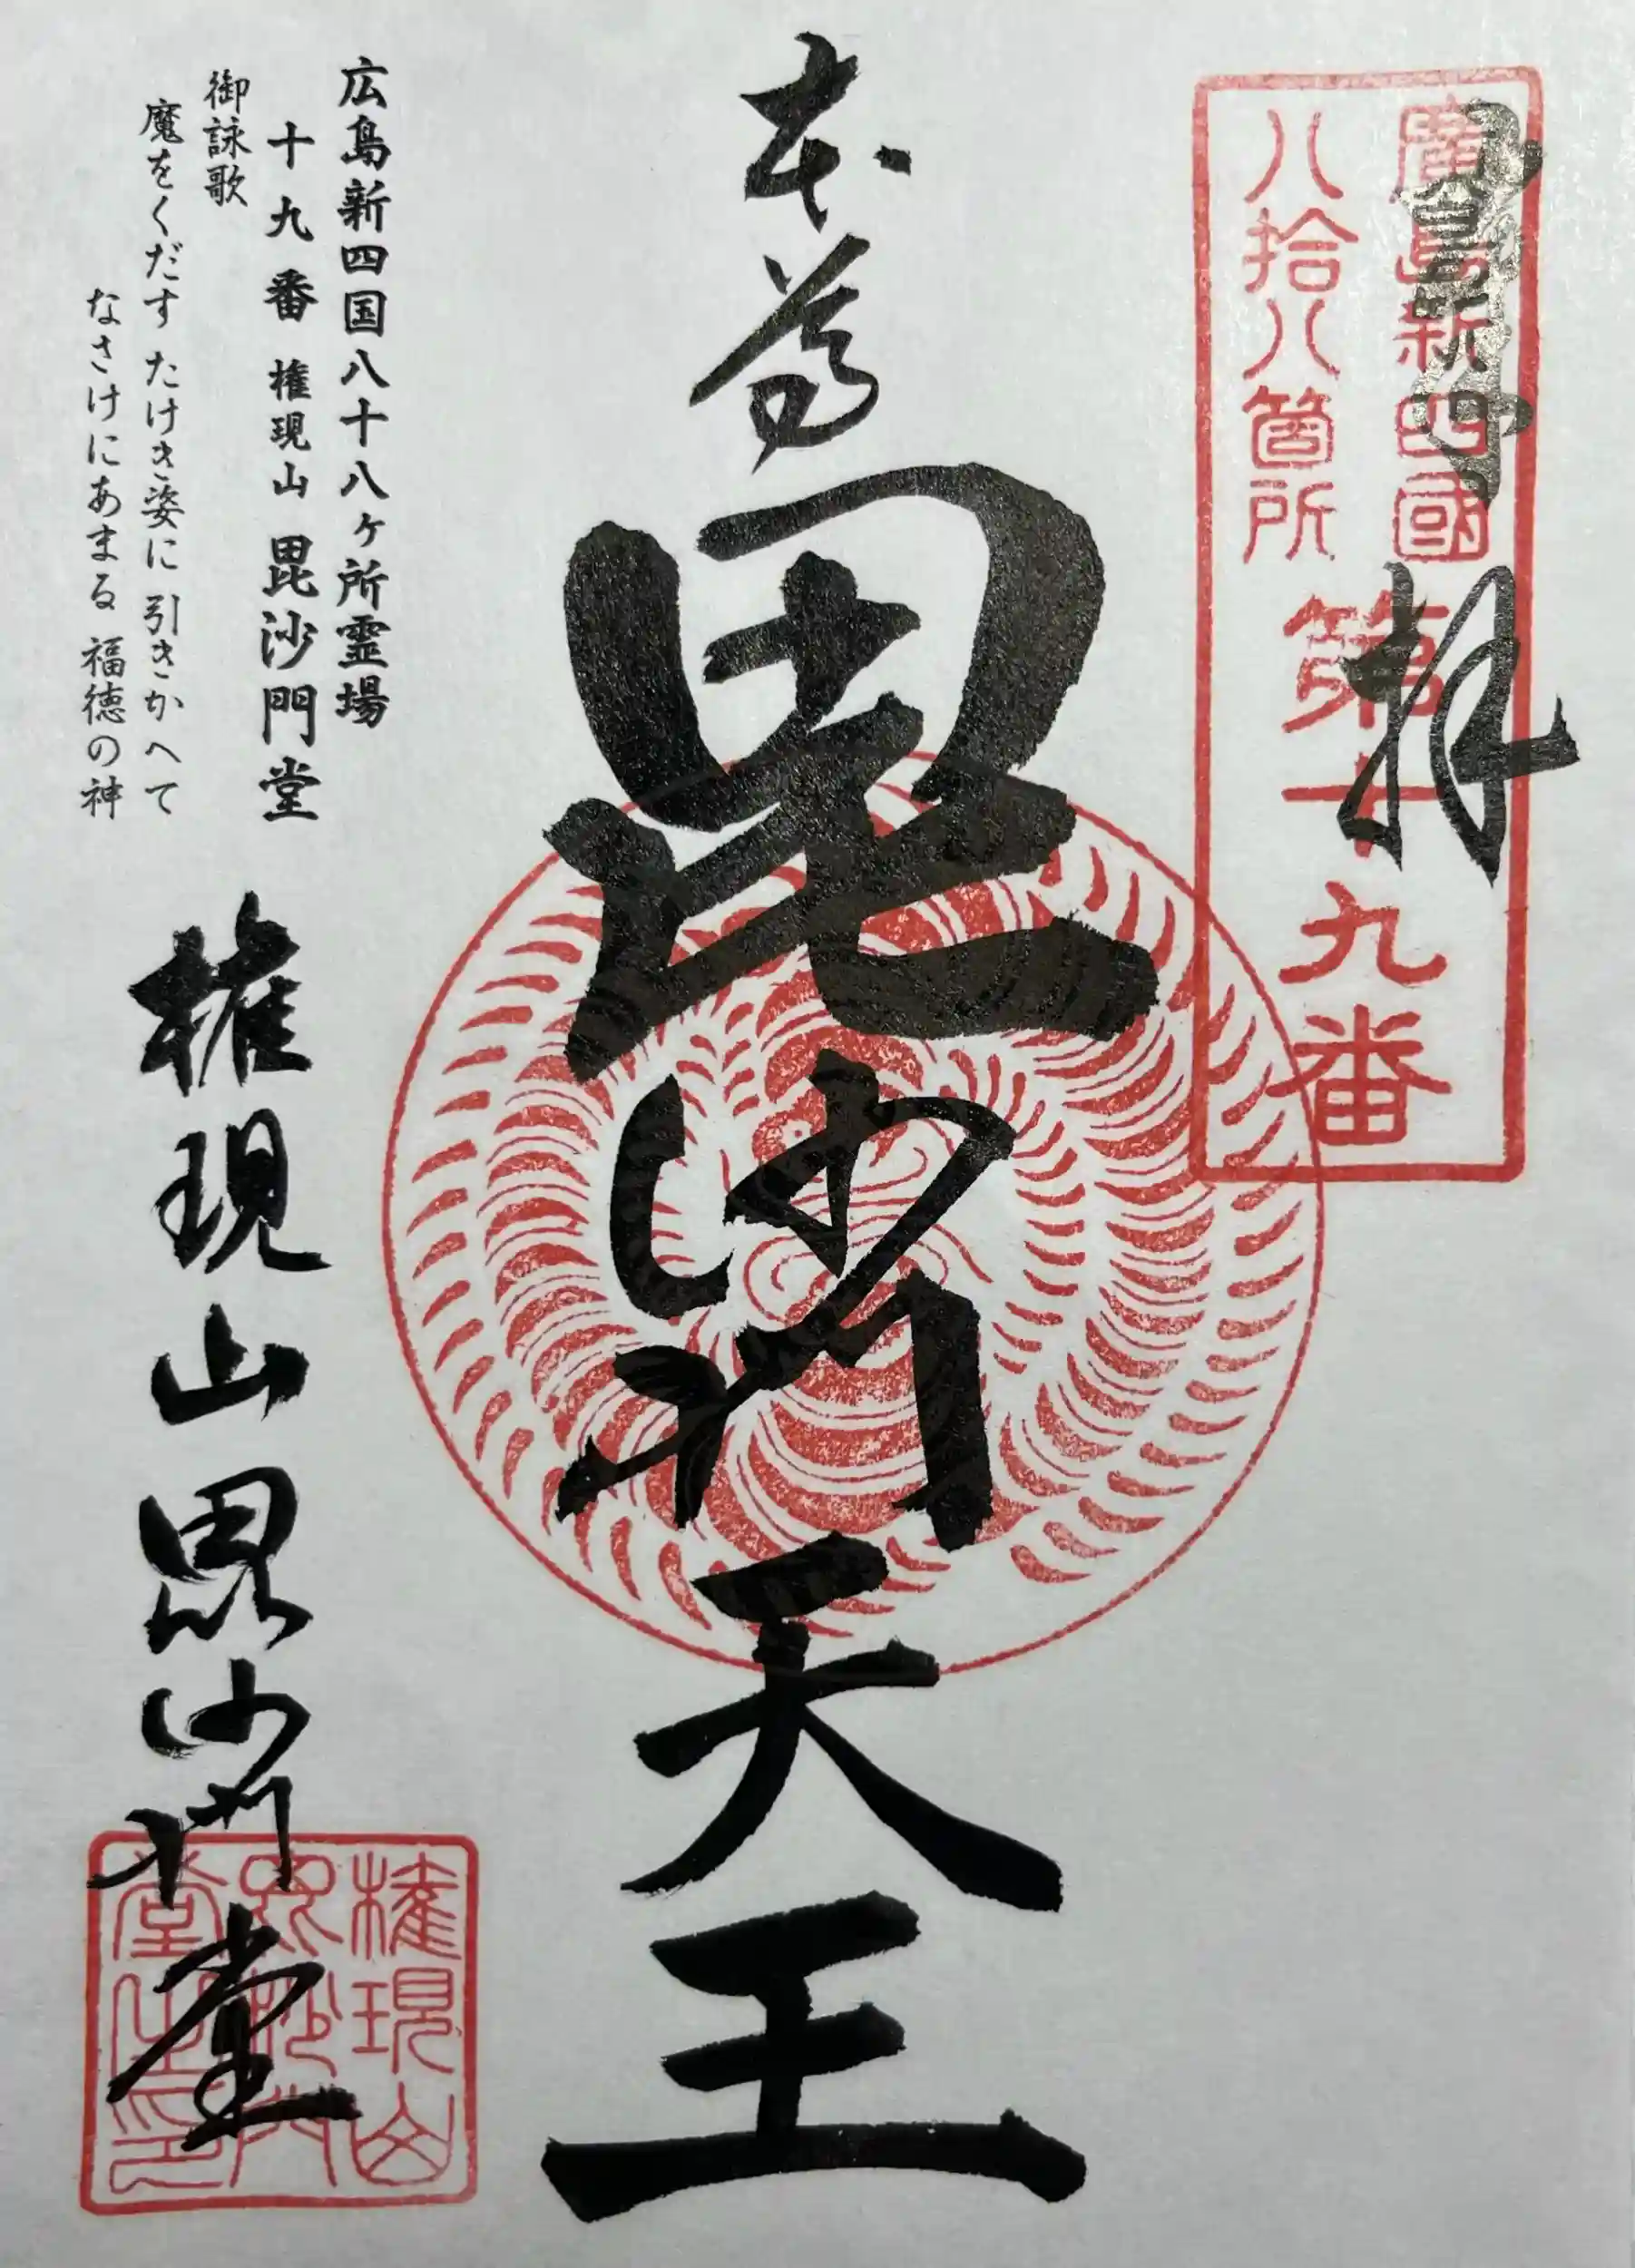 奉拝
廣島新四國
八拾八箇所
第十九番
本尊
毘沙門天王
広島新四国八十八ヶ所霊場
十九番 権現山 毘沙門堂
御詠歌
魔をくだす たけき姿に 引きかへて
なさけにあまる 福徳の神
権現山毘沙門堂
権現山
毘沙門
堂之印